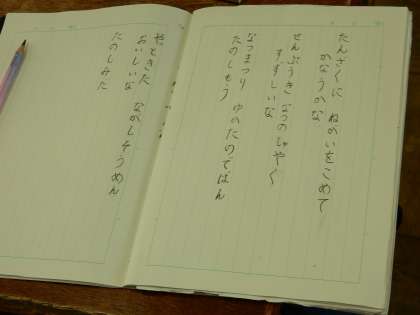 たんざくに ねがいをこめて
かなうかな
せんぷうき なつのしゃやく
すずしいな
なつまつり ゆかたのでばん
たのしもう
やっときた ながしそうめん
おいしいな
たのしみだ